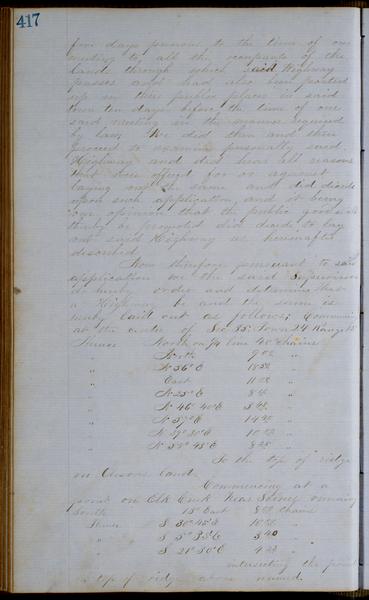 417
five days previous to the time of our
meeting to all the occupants of the
lands through which said Highway
passes and had also been posted
up in three public places in said
town ten days before the time of our
said meeting in the manner required
by law. We did then and there
proceed to examine personally said
Highway and did hear all reasons
that were offered for or against
laying out the same and did decide
upon such application, and it being
our opinion that the public good will
thereby be promoted did decide to lay
out said Highway as hereinafter
described
Now therefore pursuant to said
application we the said Supervisors
do hereby order and determine that
a Highway be and the same is
hereby laid out as follows; Commencing
at the centre of Sec 35 Town 24 Range
Thence North on ¼ line 40 chains
" North 9
" N 36° E 18
" East 11
" N 25° E 8
" N 46° 40' E
" N 57° E 14
" N 39° 30' E 10
" N 55° 45' E 8
To the top of ridge
on land
Commencing at a
point on Elk Creek Near
South 15° East 8 chains
Thence S 30° 45' E 10
" S 5° 35' E 3.40
" S 21° 30' E 4
intersecting the point
top of ridge above named